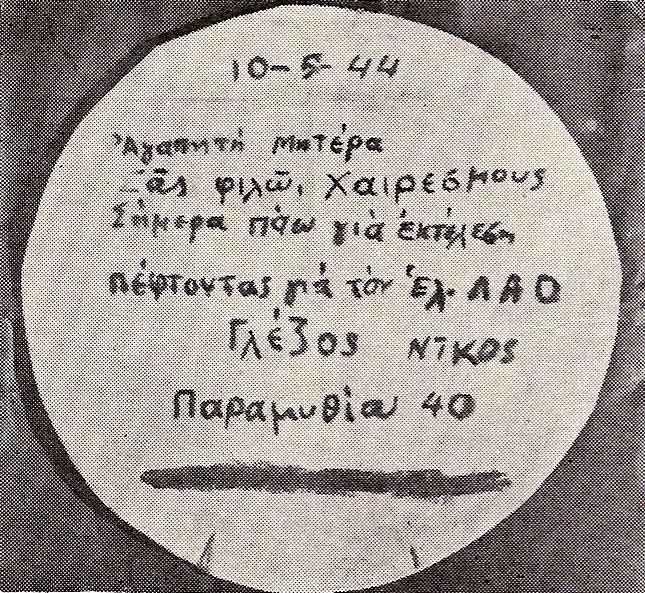 10-5-44
Ἀγαπητή Μητέρα
Σᾶς φιλῶ, Χαιρεσμους
Σήμερα πάω γιὰ ἐκτέλεση
πέφτοντας γιά τὸν Ἑλ. ΛΑΟ
Γλέζος Νῖκος
Παραμυθίας 40